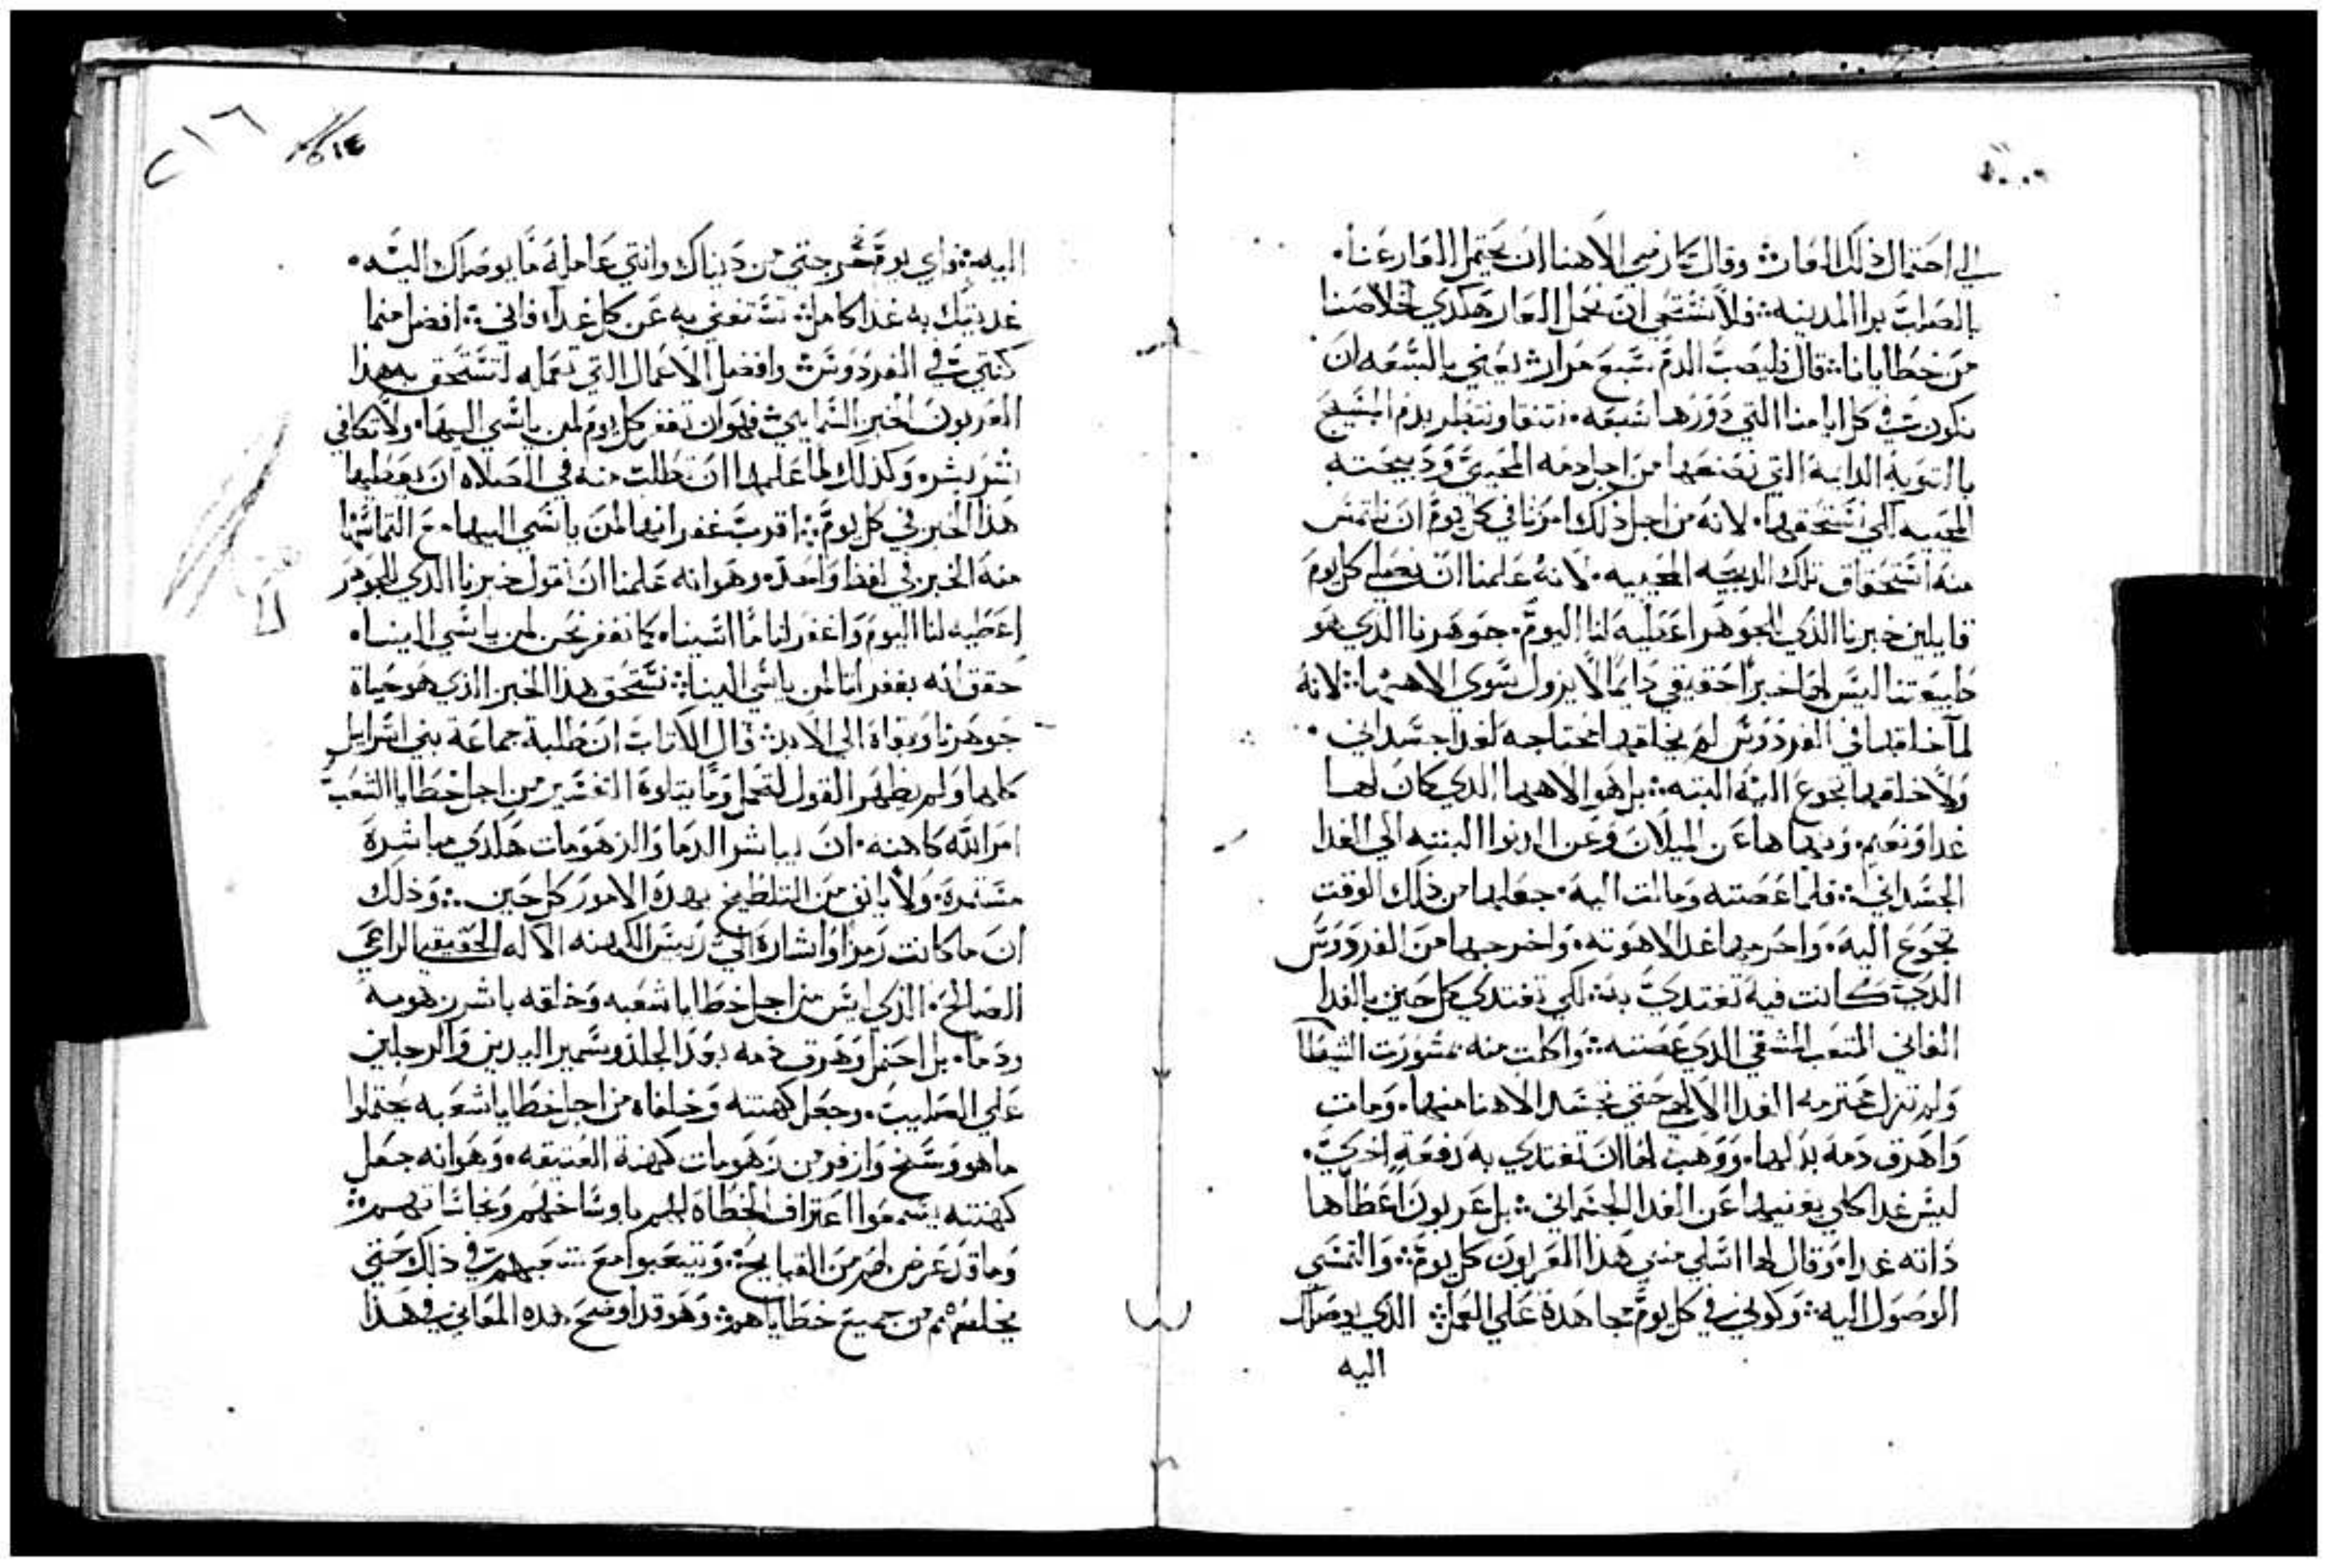 الي احتمال ذلك العار ⁘ وقال كما رضي الاهنا ان يحتمل العار عنا۰
بالصلب برا المدينه ⁘ فلا نستحي ان نحمل العار هكدي لخلاصنا
من خطايانا ⁘ قال فليصب الدم سبع مرار ⁘ يعني بالسبعه ان
نكون في كل ايامنا التي دورها سبعه۰ نتنقا ونتطهر بدم المسيح
بالتوبه الدايمة التي نصنعها من اجل دمه المحيي ودبيحته
المحييه لكي نستحقها۰ لانه من اجل ذلك امرنا في كل يوم ان نلتمس
منه استحقاق تلك الدبيحه المحييه۰ لانه علمنا ان نصلي كل يوم
قايلين خبزنا الذي للجوهر اعطيه لنا اليوم۰ جوهرنا الذي هو
طبيعتنا ليس لها خبزا حقيقي دايما لا يزول سوي الاهها ⁘ لانه
لما خلقها في الفردوس لم يخلقها محتاجه لغدا جسداني۰
ولا خلقها تجوع اليه البته ⁘ بل هو الاهها الدي كان لها
غدا ونعيم۰ ونهاها عن الميلان وعن الدنوا البتته الي الغدا
الجسداني ⁘ فلما عصته ومالت اليه۰ جعلها من ذلك الوقت
تجوع اليه۰ واحرمها غدا لاهوته۰ واخرجها من الفردوس
الدي كانت فيه تغتدي به ⁘ لكي تغتدي كل حين بالغدا
الفاني المتعب المشقي الدي عصته ⁘ واكلت منه بمشورت الشيطا
ولم تزل محترمه الغدا الالهي حتي تجسد الاهنا منها۰ ومات
واهرق دمه بدلها۰ ووهب لها ان تغتدي به دفعة اخري۰
ليس غدا كلي يغنيها عن الغدا الجسداني ⁘ بل عربون اعطاها
داته غدا۰ وقال لها اسلي مني هذا العربون كل يوم ⁘ والتمسي
الوصول اليه ⁘ وكوني في كل يوم مجاهدة علي العمل ⁘ الذي يوصلك
اليه
٢١٦
اليه ⁘ فاي يوم خرجتي من دنياك وانتي عاملة ما يوصلك اليه۰
غديتك به غدا كامل ⁘ تستغني به عن كل غدا فاني ⁘ افضل مما
كنتي في الفردوس ⁘ وافضل الاعمال التي تعمله لتستحق بهذا
العربون الخبز السمايي ⁘ فهو ان تغفر كل يوم لمن ياسي اليها۰ ولا تكافي
شر بشر۰ وكذلك لما علمها ان تطلب منه في الصلاه ان يعطيها
هذا الخبز في كل يوم ⁘ اقرب غفرانها لمن ياسي اليها مع التماسها
منه الخبز في لفظ واحد۰ وهو انه علمنا ان نقول خبزنا الدي للجوهر
اعطيه لنا اليوم واغفر لنا ما اسيناه كما نغفر نحن لمن ياسي الينا۰
حقق انه بغفراننا لمن ياسي الينا ⁘ نستحق هذا الخبز الذي هو حياة
جوهرنا وبقاه الي الابد ⁘ قال الكتاب ان طلبة جماعة بني اسراييل
كلها ولم يظهر القول لتحمل وما يتلوه التفسير من اجل خطايا الشعب
امر الله كاهنه۰ ان يباشر الدما والزهومات هكدي مباشرة
مستمرة۰ ولا يانف من التلطيخ بهده الامور كل حين ⁘ وذلك
ان ما كانت رمزا واشارة الي رييس الكهنه الاله الحقيقي الراعي
الصالح۰ الذي ليس من اجل خطايا شعبه وخلقه باشر زهومه
ودما۰ بل احتمل وهرق دمه بعد الجلد وتسمير اليدين والرجلين
علي الصليب۰ وجعل كهنته وخلفاه من اجل خطايا شعبه يحتملوا
ما هو وسخ وازفر من زهومات كهنة العتيقه۰ وهو انه جعل
كهنته يسمعوا اعتراف الخطاه لهم باوساخهم ونجاساتهم ⁘
وما قد عرض لهم من القبايح ⁘ ويتعبوا مع شعبهم في ذلك حتي
يخلصهم من جميع خطاياهم ⁘ وهو قد اوضح هده المعاني في هذا